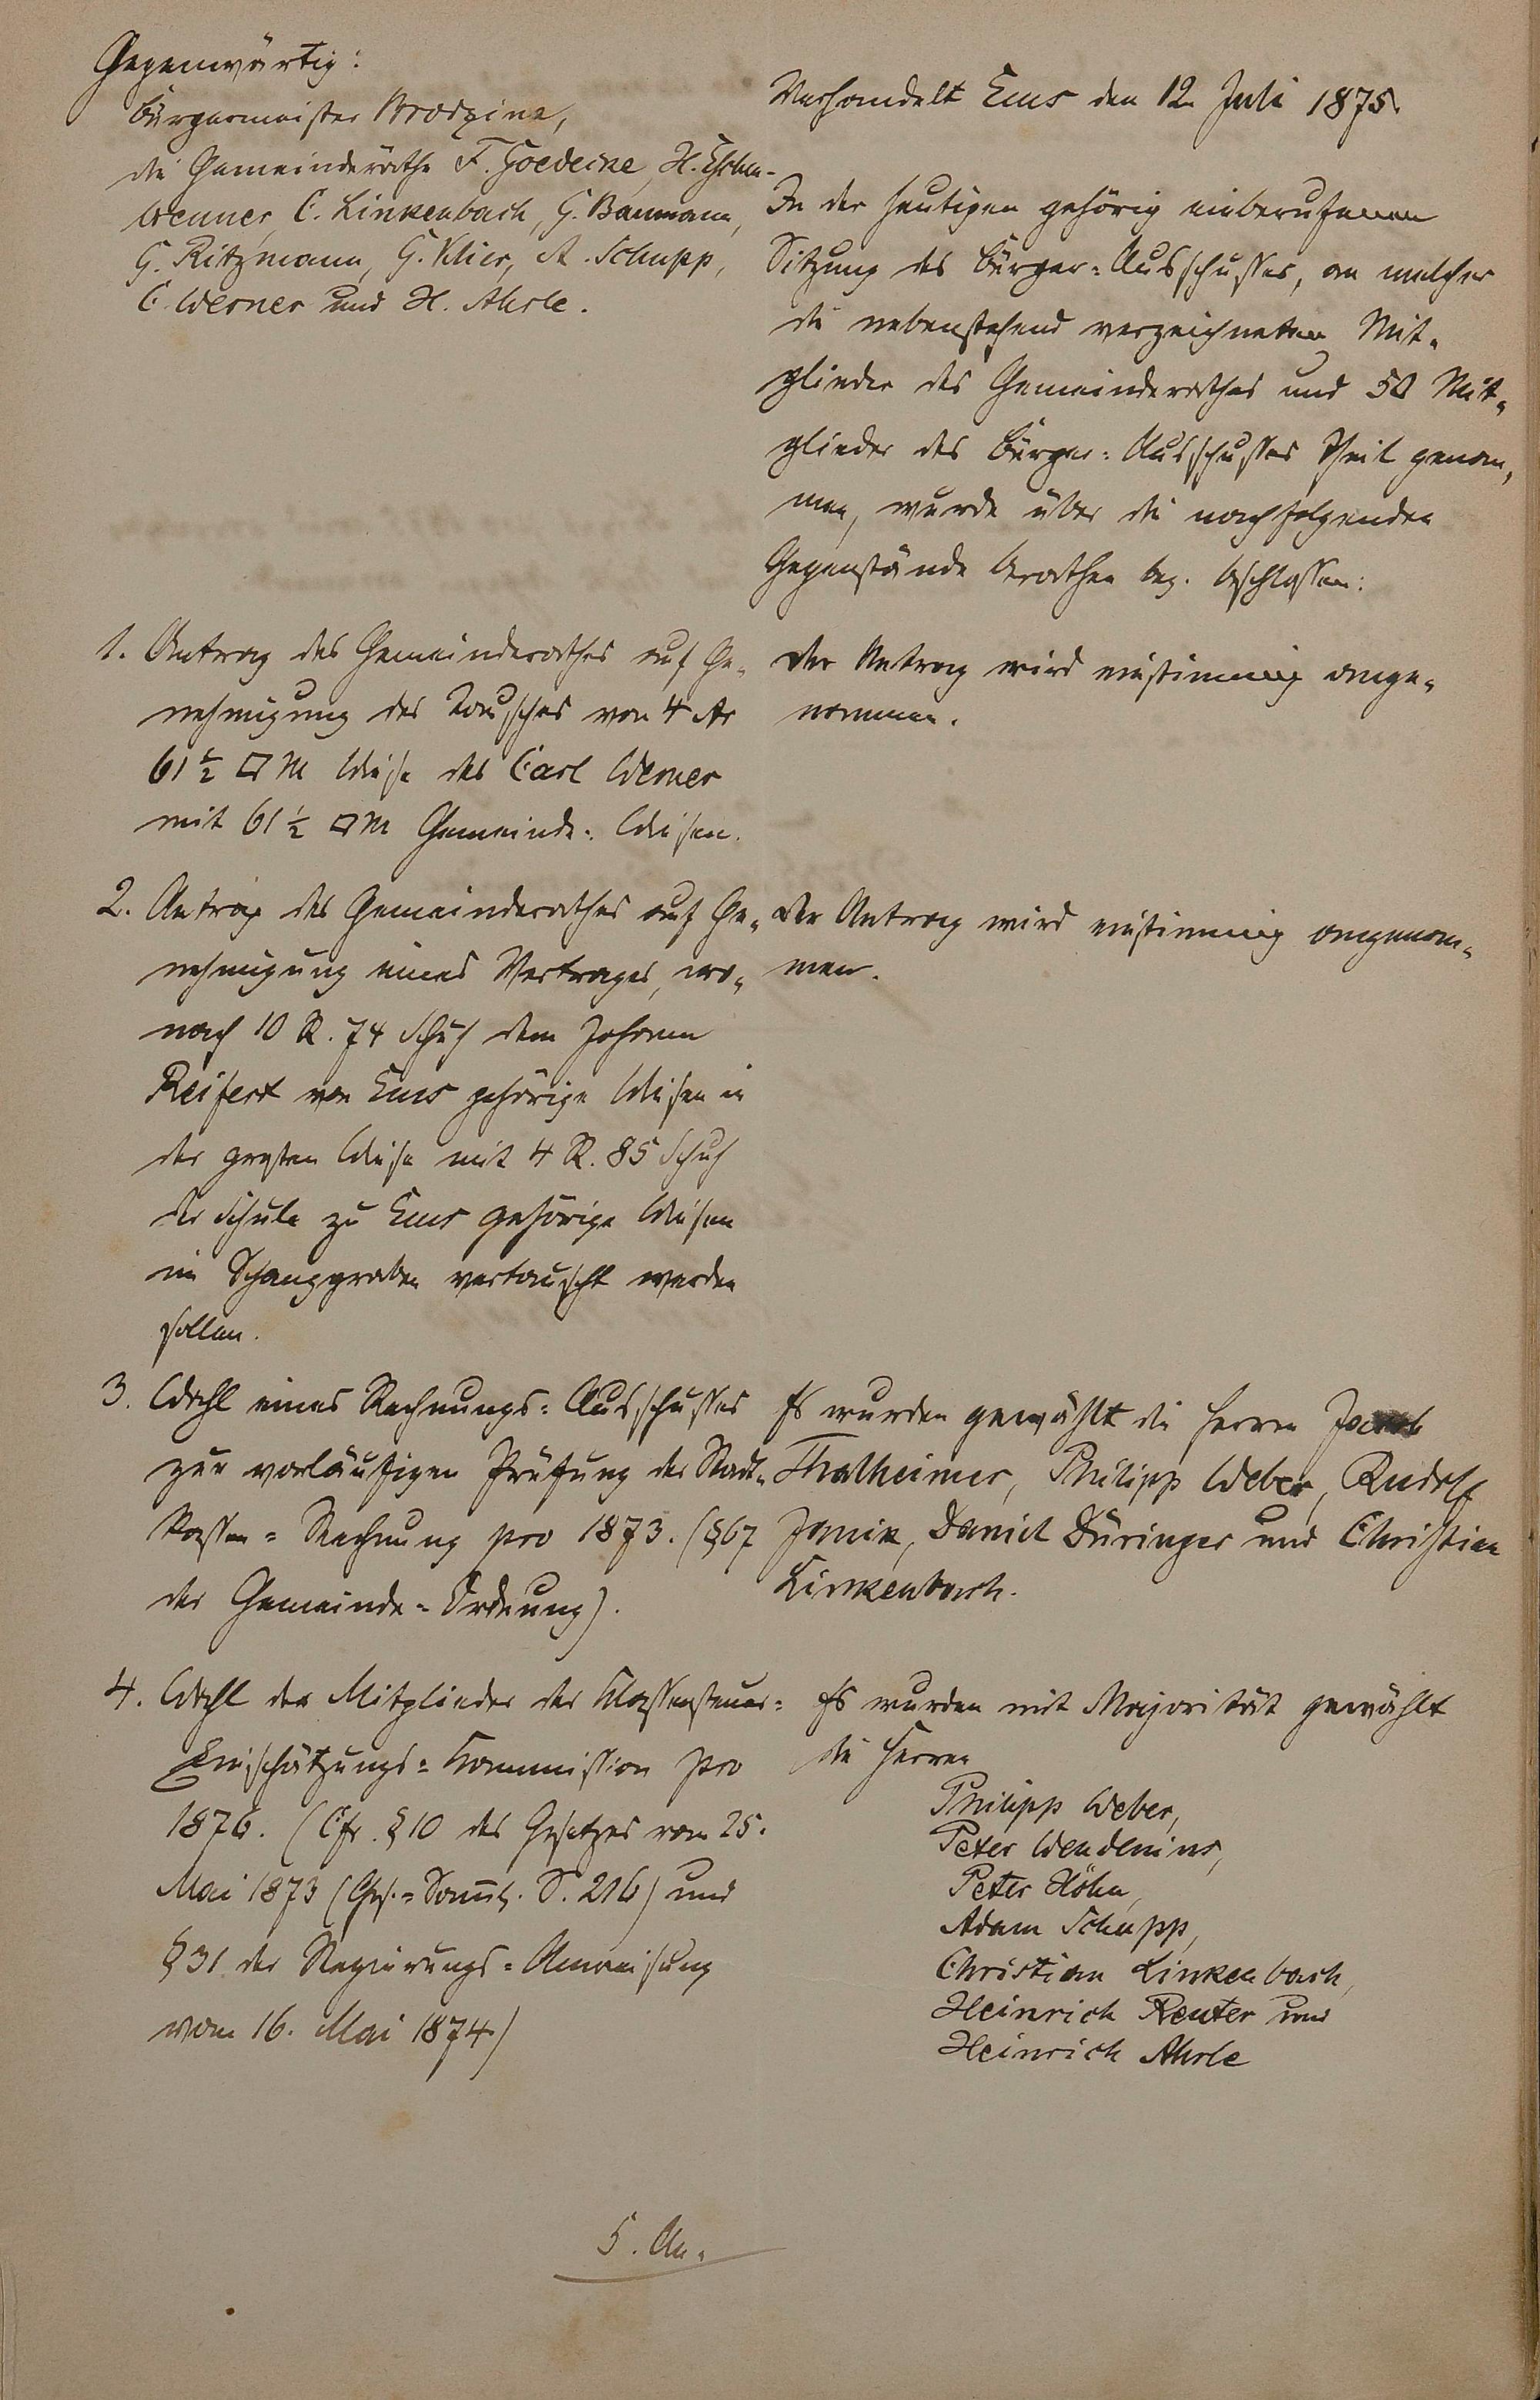 Gegenwärtig:
Bürgermeister Brodzina,
die Gemeinderäthe F. Goedecke, H. Ehrlen-
wenner, C. Linkenbach, G. Baumann,
G. Ritzmann, G. Klier, A. Schupp,
C. Werner und H. Ahrle.
Verhandelt Ems den 12. Juli 1875.
In der heutigen gehörig einberufenen
Sitzung des Bürger=Ausschusses, an welcher
die nebenstehend verzeichneten Mit-
glieder des Gemeinderathes und 50 Mit-
glieder des Bürger=Ausschusses Theil genom-
men, wurde über die nachfolgenden
Gegenstände berathen bez. beschlossen:
1. Antrag des Gemeinderathes auf Ge-
nehmigung des Tausches von 4 Ar
61 1/2 □ M Wiese des Carl Werner
mit 61 1/2 □ M Gemeinde=Wiesen.
Der Antrag wird einstimmig ange-
nommen.
2. Antrag des Gemeinderathes auf Ge-
nehmigung eines Vertrages, wo-
nach 10 R. 74 Schuh dem Johann
Reifert von Ems gehörige Wiesen in
der großen Wiese mit 4 R. 85 Schuh
der Schule zu Ems gehörige Wiesen
im Schanzgraben vertauscht werden
sollen.
Der Antrag wird einstimmig angenom-
men.
3. Wahl eines Rechnungs=Ausschusses
zur vorläufigen Prüfung der Stadt-
kassen=Rechnung pro 1873. (§67
der Gemeinde=Ordnung).
Es wurden gewählt die Herren Jacob
Thalheimer, Philipp Weber, Rudolf
Janik, Daniel Düringer und Christian
Linkenbach.
4. Wahl der Mitglieder der Klassensteuer=
Einschätzungs=Kommission pro
1876. (Cfr. §10 des Gesetzes vom 25.
Mai 1873 (Ges.=Samml. S. 216) und
§31 der Regierungs=Anweisung
vom 16. Mai 1874)
Es wurden mit Majorität gewählt
die Herren
Philipp Weber,
Peter Wendenius,
Peter Höhn,
Adam Schupp,
Christian Linkenbach,
Heinrich Reuter und
Heinrich Ahrle
5. An-